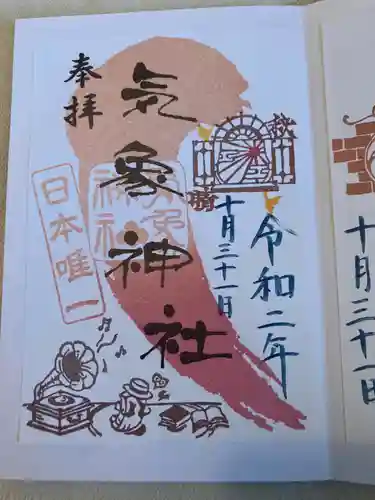 奉拝
気象神社
日本唯一
気象神社
秋晴
令和二年
十月三十一日
十月三十一日